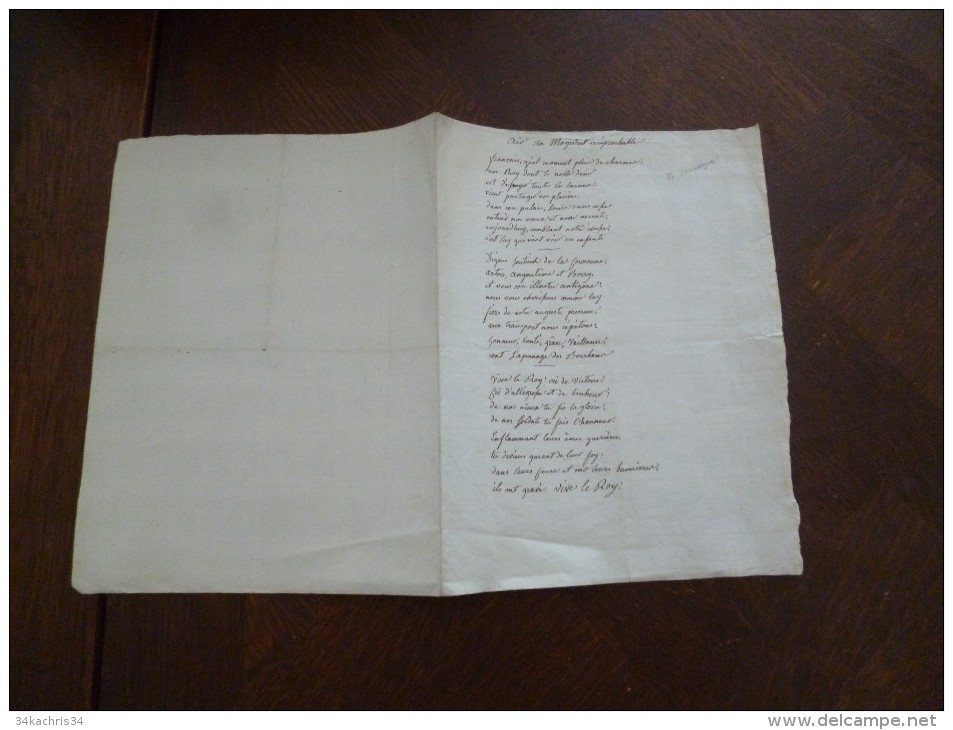 Air du Magistrat irréprochable
francais, quel moment plein de charmes;
un Roy dont la noble
toutes les larmes
vient partager nos plaisirs,
dans son palais,
entend nos voeux et
aujourd'huy, comblant notre
c'est luy qui vient voir ses enfants
Dignes soutiens de la Couronne;
artois, angouleme et Berry;
et vous son illustre antigone;
nous vous cherissons comme luy
fiers de votre auguste personne,
avec transport nous répétons;
honneur, bonté, grâce, Vaillance;
sont L'apanage des Bourbons
Vive le Roy! cri de victoire!
Cri d'allégresse et de bonheur;
de nos ayeux tu fis la gloire;
de nos soldats tu fais l'honneur.
Enflammant leurs âmes guerrières,
tu deviens garant de leur foy;
dans leurs coeurs et sur leurs bannieres;
ils ont gravé vive le Roy!
34kachris34
www.delcampe.net